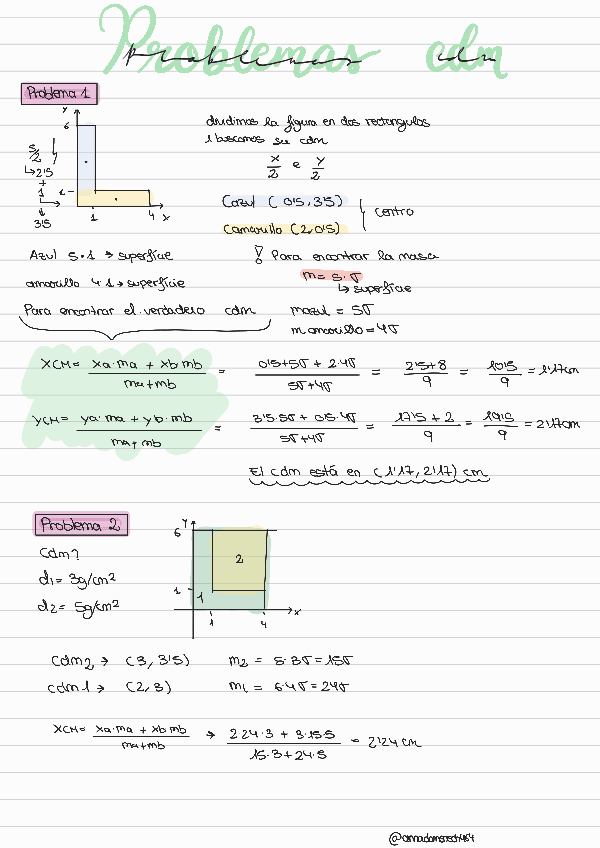 Problemas cdm
Problema 1
Y
6
5/2
↳ 2'5
+
1
↓
3'5
1
1
4
X
dividimos la figura en dos rectangulos
i buscamos su cdm
X/2 e Y/2
Cazul (0'5, 3'5)
Camarillo (2, 0'5)
centro
Azul 5·1 → superficie
amarillo 4·1 → superficie
! Para encontrar la masa
m = s·σ
↳ superficie
Para encontrar el verdadero cdm
mazul = 5σ
m amarillo = 4σ
XCM = xa·ma + xb·mb / ma+mb = 0'5+5σ + 2·4σ / 5σ+4σ = 2'5+8 / 9 = 10'5 / 9 = 1'17cm
YCM = ya·ma + yb·mb / ma+mb = 3'5·5σ + 0'5·4σ / 5σ+4σ = 17'5 + 2 / 9 = 19'5 / 9 = 2'17cm
El cdm está en (1'17, 2'17) cm
Problema 2
Cdm?
d1 = 3g/cm²
d2 = 5g/cm²
Y
6
2
1
1
1
4
X
Cdm2 → (3, 3'5)
m2 = 5·3σ = 15σ
cdm1 → (2, 3)
m1 = 6·4σ = 24σ
XCM = xa·ma + xb·mb / ma+mb → 2 24·3 + 3·15·5 / 15·3+24·5 = 2'24 cm